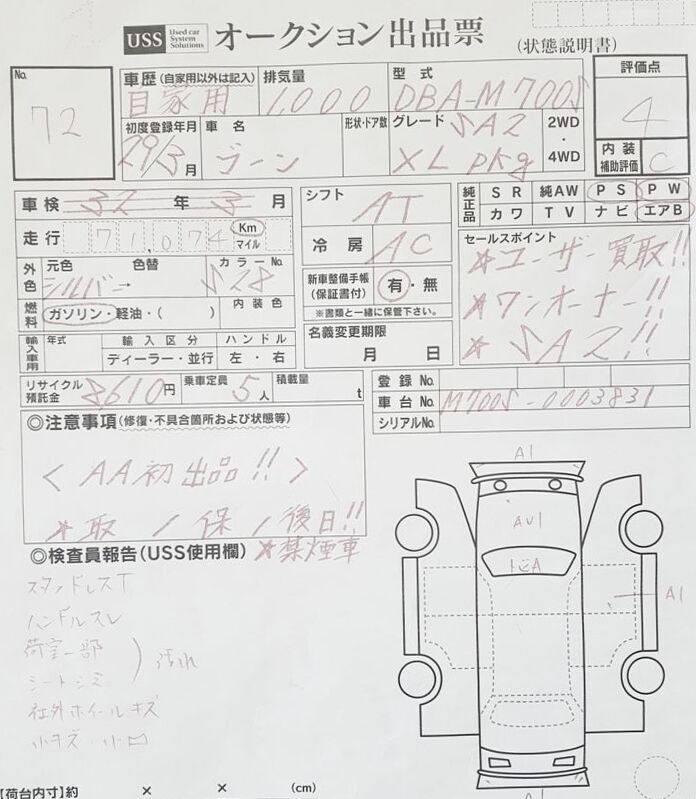 USS Used car System Solutions オークション出品票 (状態説明書)
No. 72
車歴(自家用以外は記入) 自家用
排気量 1,000
型式 DBA-M700S
評価点 4
初度登録年月 29/3月
車名 ブーン
形状・ドア数
グレード SA2 XL pkg
2WD・4WD
内装補助評価 C
車検 32年3月
シフト AT
純正品 SR 純AW PS PW
カワ TV ナビ エアB
走行 71,074 Km マイル
冷房 AC
セールスポイント
★ユーザー買取!!
★ワンオーナー!!
★SA2!!
外色 元色 色替 カラーNo.
シルバー→ S28
新車整備手帳(保証書付) 有・無
※書類と一緒に保管下さい。
燃料 ガソリン・軽油・( ) 内装色
輸入車用 年式 輸入区分 ハンドル
ディーラー・並行 左・右
名義変更期限 月 日
リサイクル預託金 8610円
乗車定員 5人
積載量 t
登録No.
車台No. M700S-0003831
シリアルNo.
◎注意事項(修復・不具合箇所および状態等)
<AA初出品!!>
★取/保/後日!!
★禁煙車
◎検査員報告(USS使用欄)
スタッドレスT
ハンドルスレ
荷室一部
シートシミ
汚れ
社外ホイールキズ
小キズ・小凹
A1
AU1
トビA
A1
A1
【荷台内寸】約 × × (cm)